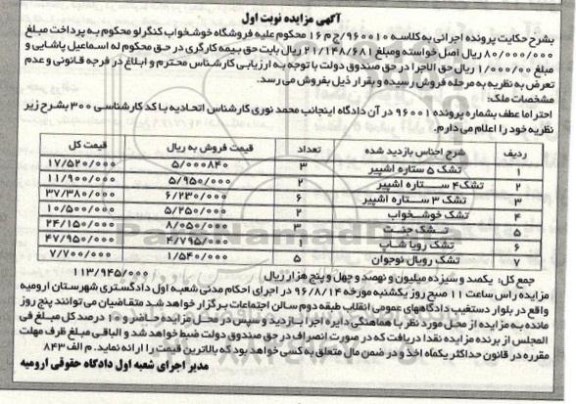 آگهی مزایده نوبت اول
بشرح حکایت پرونده اجرائی به کلاسه ۹۶۰۰۱۰/ج م ۱۶ محکوم علیه فروشگاه خوشخواب کنگرلو محکوم به پرداخت مبلغ
۸۰/۰۰۰/۰۰۰ ریال اصل خواسته ومبلغ ۲۱/۱۴۸/۶۸۱ ریال بابت حق بیمه کارگری در حق محکوم له اسماعیل پاشایی و
مبلغ ۱/۰۰۰/۰۰ ریال حق الاجرا در حق صندوق دولت با توجه به ارزیابی کارشناس محترم و ابلاغ در فرجه قانونی و عدم
تعرض به نظریه به مرحله فروش رسیده و بقرار ذیل بفروش می رسد.
مشخصات ملک:
احتراما عطف بشماره پرونده ۹۶۰۰۱ در آن دادگاه اینجانب محمد نوری کارشناس اتحادیه با کد کارشناسی ۳۰۰ بشرح زیر
نظریه خود را اعلام می دارم.
ردیف شرح اجناس بازدید شده تعداد قیمت فروش به ریال قیمت کل
۱ تشک ۵ ستاره اشپیر ۳ ۵/۰۰۰۸۴۰ ۱۷/۵۲۰/۰۰۰
۲ تشک۴ ستاره اشپیر ۲ ۵/۹۵۰/۰۰۰ ۱۱/۹۰۰/۰۰۰
۳ تشک ۳ ستاره اشپیر ۶ ۶/۲۳۰/۰۰۰ ۳۷/۳۸۰/۰۰۰
۴ تشک خوشخواب ۲ ۵/۲۵۰/۰۰۰ ۱۰/۵۰۰/۰۰۰
۵ تشک جنت ۳ ۸/۰۵۰/۰۰۰ ۲۴/۱۵۰/۰۰۰
۶ تشک رویا شاپ ۱ ۴/۷۹۵/۰۰۰ ۴۷/۹۵۰/۰۰۰
۷ تشک رویال نوجوان ۵ ۱/۵۴۰/۰۰۰ ۷/۷۰۰/۰۰۰
جمع کل: یکصد و سیزده میلیون و نهصد و چهل و پنج هزار ریال ۱۱۳/۹۴۵/۰۰۰
مزایده راس ساعت ۱۱ صبح روز یکشنبه مورخه ۹۶/۸/۱۴ در اجرای احکام مدنی شعبه اول دادگستری شهرستان ارومیه
واقع در بلوار دستغیب دادگاههای عمومی انقلاب طبقه دوم سالن اجتماعات برگزار خواهد شد متقاضیان می توانند پنج روز
مانده به مزایده از محل مورد نظر با هماهنگی دایره اجرا بازدید و سپس در محل مزایده حاضر و ۱۰ درصد کل مبلغ فی
المجلس از برنده مزایده نقدا دریافت که در صورت انصراف در حق صندوق دولت ضبط خواهد شد و الباقی مبلغ ظرف مهلت
مقرره در قانون حداکثر یکماه اخذ و در ضمن مال متعلق به کسی خواهد بود که بالاترین قیمت را ارائه نماید. م الف ۸۴۳
مدیر اجرای شعبه اول دادگاه حقوقی ارومیه